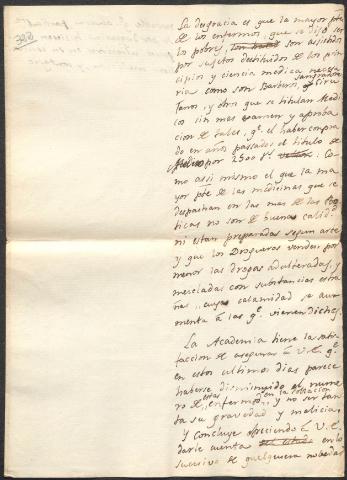 388
La desgracia es que la mayor pte
de los enfermos, que se dijo ser
los pobres, son asistidos
por sujetos destituidos de los prin
cipios y ciencia medica necesa
ria como son Barberos, sangradores, o Ciru
janos, y otros que se titulan Medi
cos sin mas examen y aproba
cion de tales, qe. el haver compra
do en años passados el titulo de
Medico por 2500 rs. : Co
mo assi mismo el que la ma
yor pte de las medicinas que se
despachan en las mas de las Bo
ticas no son de buena calidd.
ni estan preparadas segun arte
y que los Drogueros venden por
menor las drogas adulteradas, y
mezcladas con substancias estra
ñas, cuya calamidad se au
menta a las qe. vienen dichas.
La Academia tiene la satis
faccion de asegurar a V.E. qe.
en estos ultimos dias parece
haberse disminuido el nume
ro de estas enfermeds. en la poblacion, y no ser tan
ta su gravedad y malicia.
Y concluye ofreciendo a V.E.
darle cuenta en lo
sucesivo de qualquiera novedad